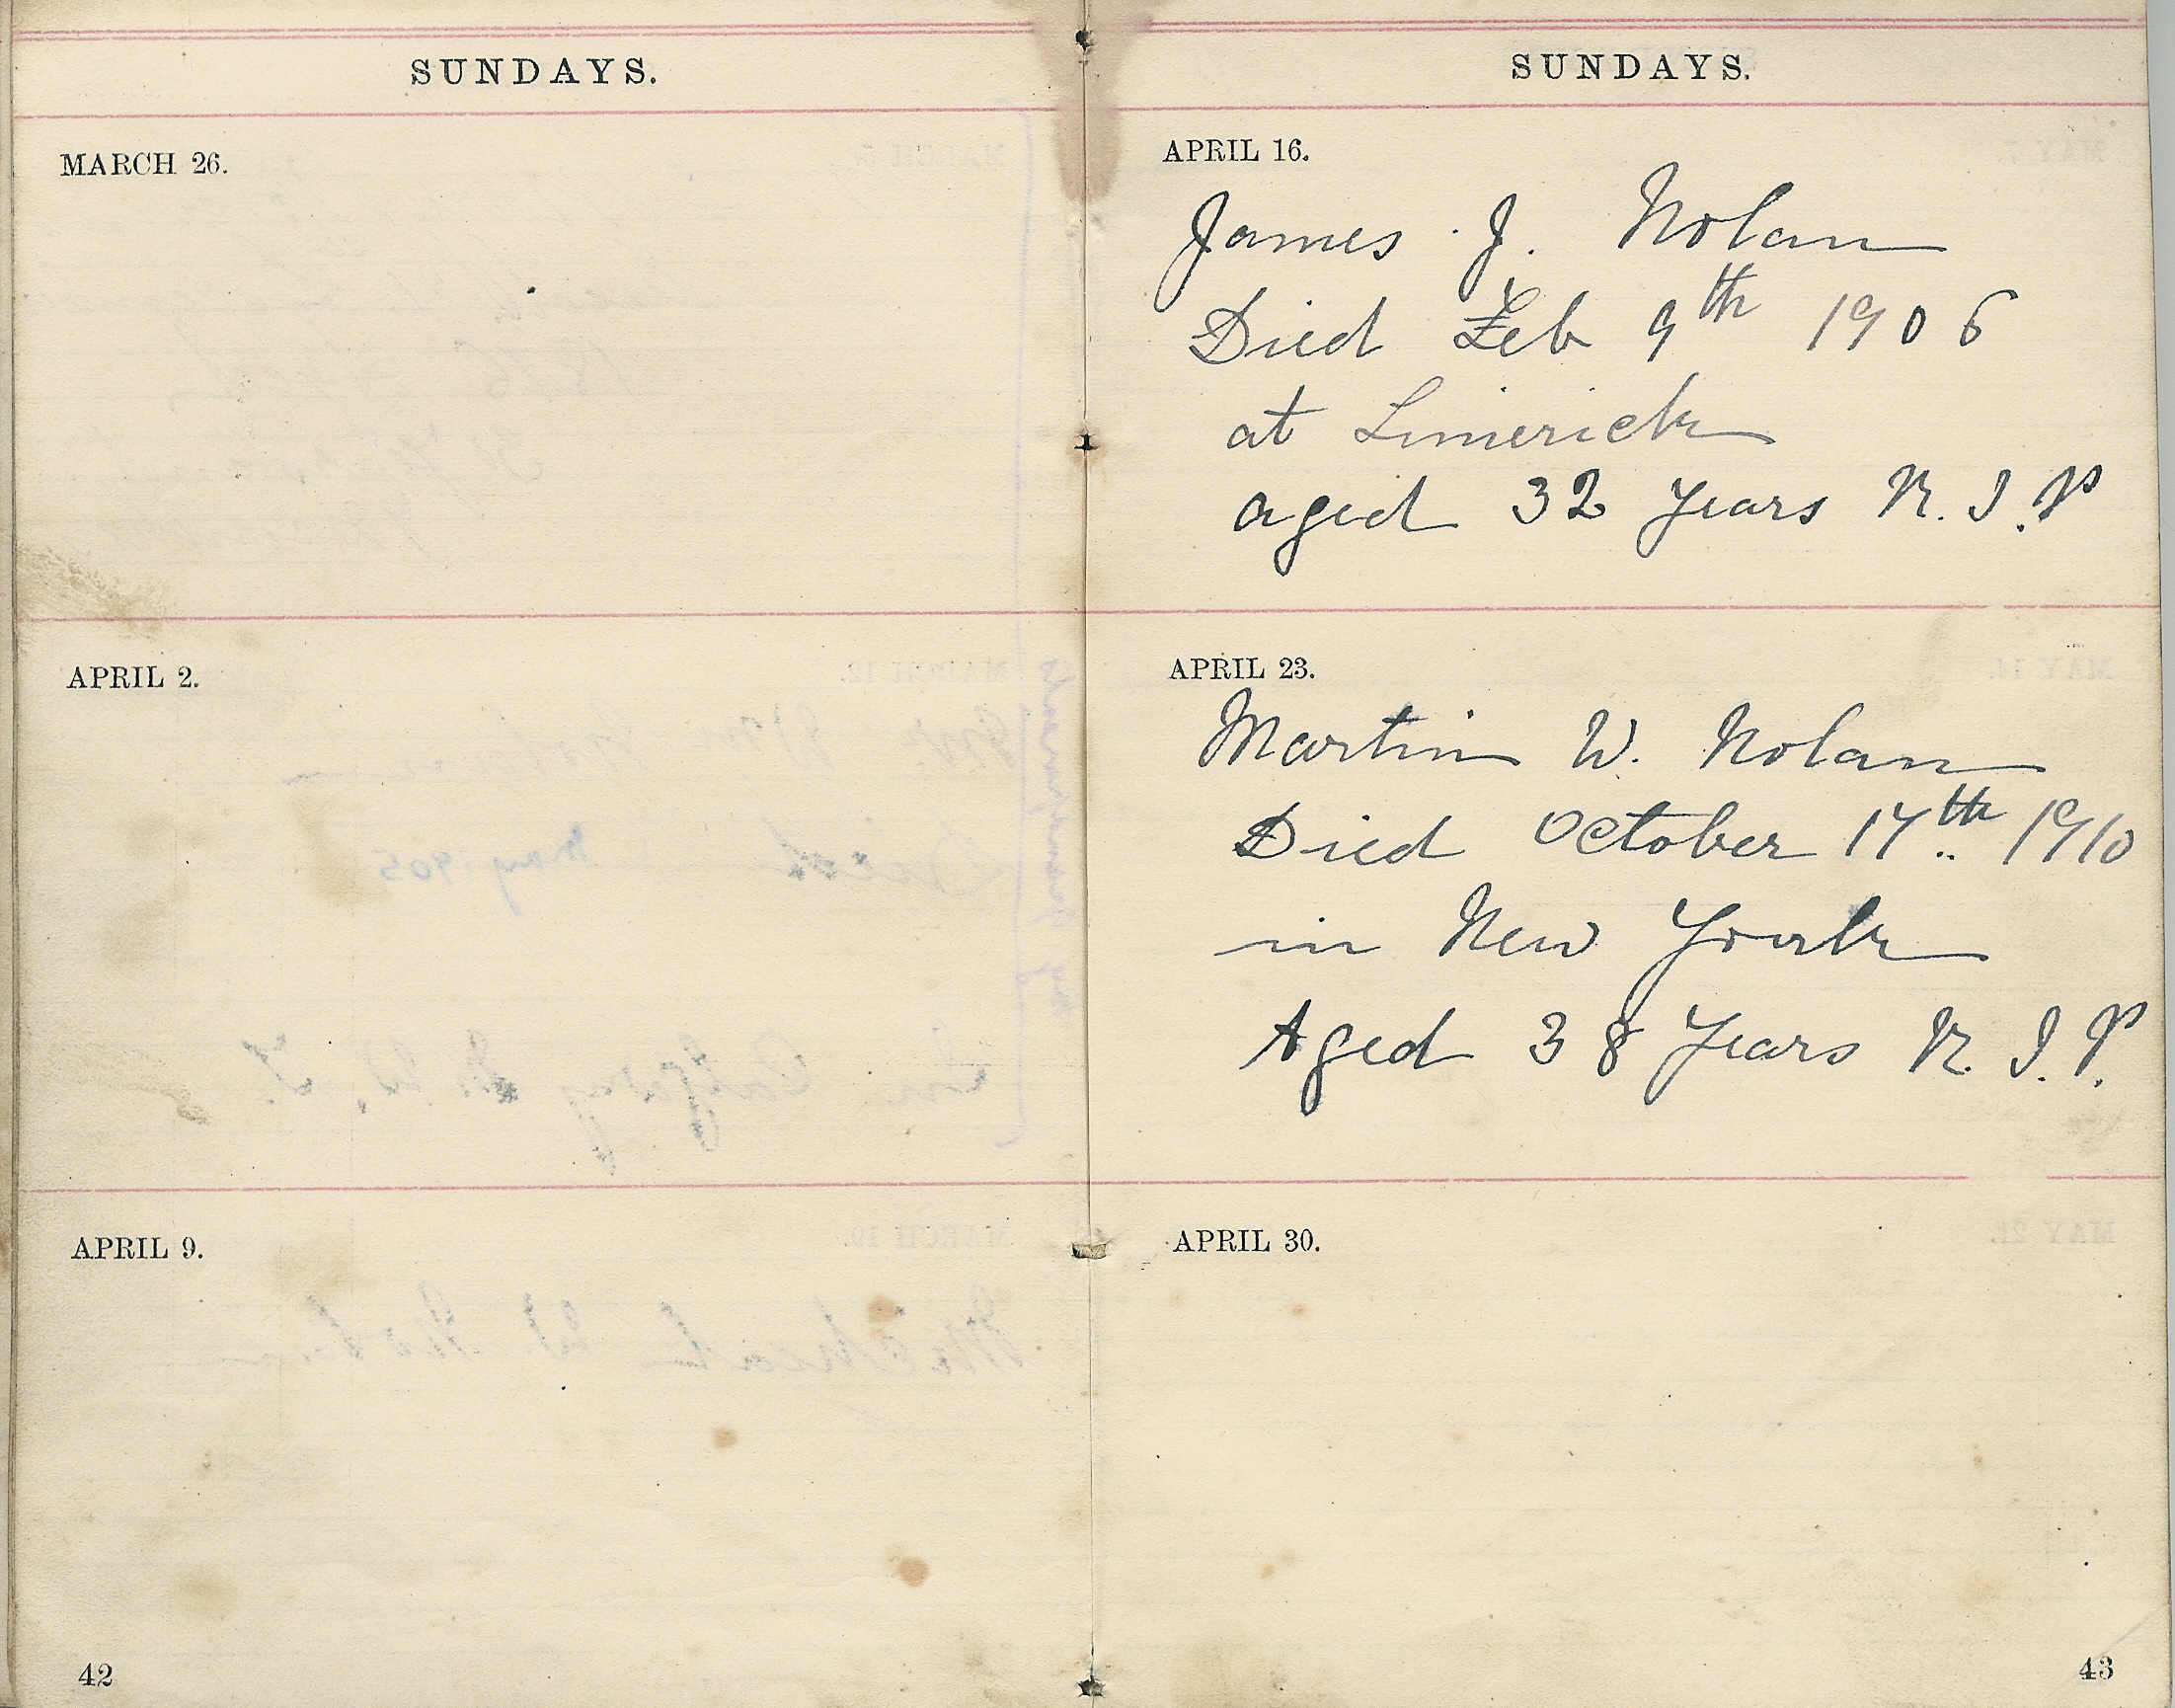 SUNDAYS.
MARCH 26.
APRIL 2.
APRIL 9.
42
SUNDAYS.
APRIL 16.
James J. Nolan
Died Feb 9th 1906
at Limerick
aged 32 years R. I. P
APRIL 23.
Martin W. Nolan
Died October 17th 1910
in New York
Aged 38 Years R. I. P.
APRIL 30.
43